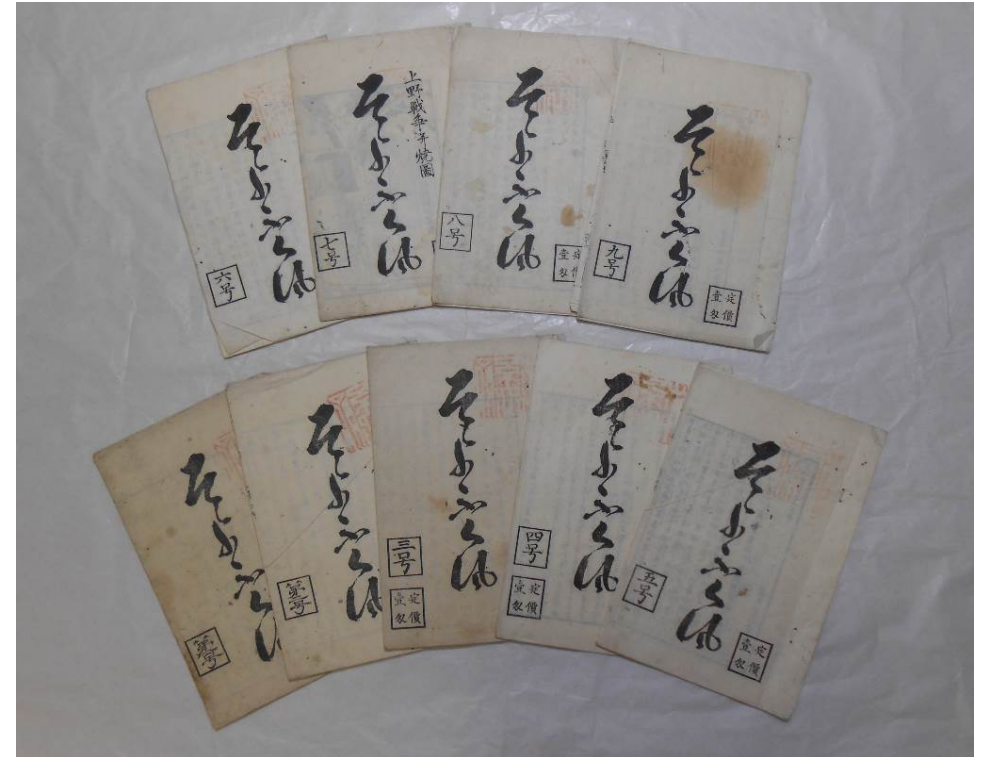 そよふく風
六号
上野戰争并焼圖
そよふく風
七号
そよふく風
八号
そよふく風
九号
定價
壹匁
そよふく風
そよふく風
そよふく風
三号
定價
壹匁
そよふく風
四号
定價
壹匁
そよふく風
五号
定價
壹匁